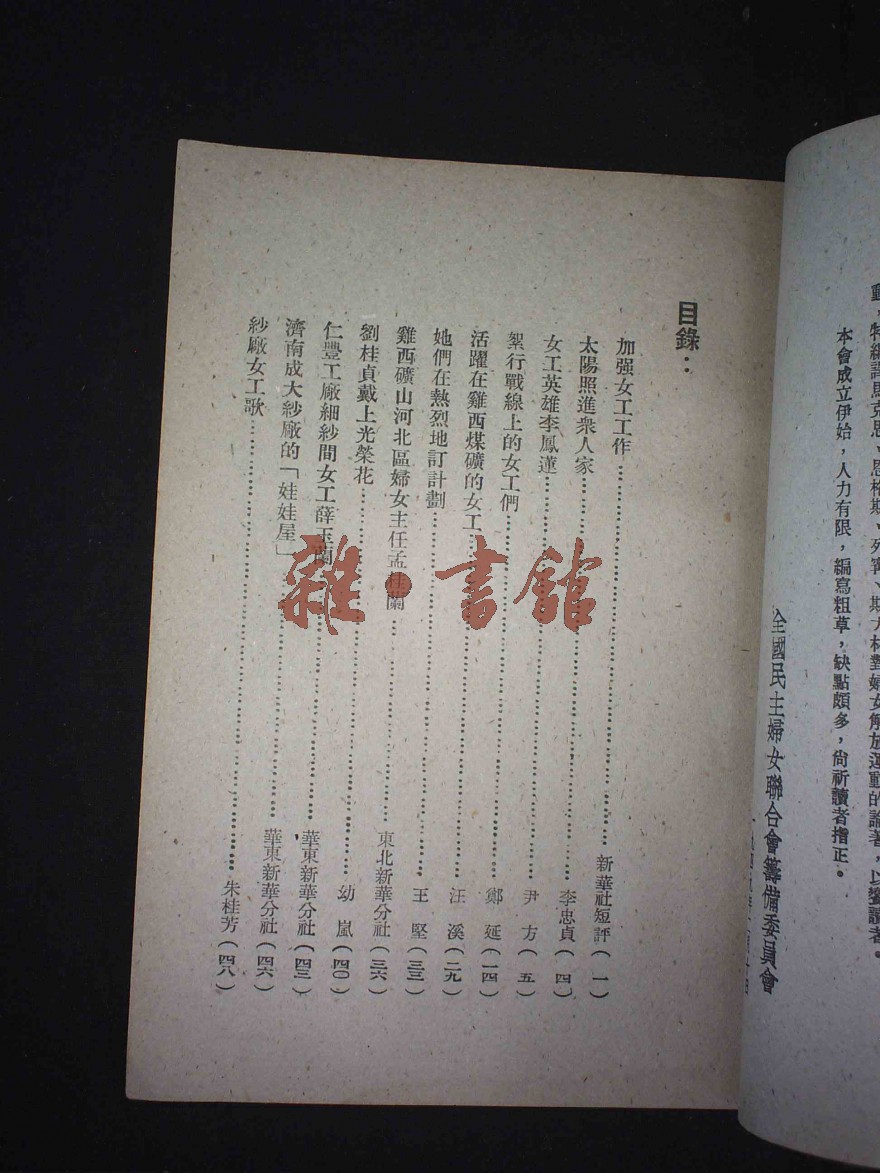 動，特編譯馬克思、恩格斯、列寧、斯大林對婦女解放運動的論著，以饗讀者。
本會成立伊始，人力有限，編寫粗草，缺點頗多，尚祈讀者指正。
全國民主婦女聯合會籌備委員會
目錄：
加强女工工作……新華社短評（一）
太陽照進衆人家……李忠貞（四）
女工英雄李鳳蓮……尹方（五）
絮行戰線上的女工們……鄭延（一四）
活躍在雞西煤礦的女工……汪溪（二九）
她們在熱烈地訂計劃……王堅（三三）
雞西礦山河北區婦女主任孟桂蘭……東北新華分社（三六）
劉桂貞戴上光榮花……幼嵐（四〇）
仁豐工廠細紗間女工薛玉蘭……華東新華分社（四三）
濟南成大紗廠的「娃娃屋」……華東新華分社（四六）
紗廠女工歌……朱桂芳（四八）
雜·書館